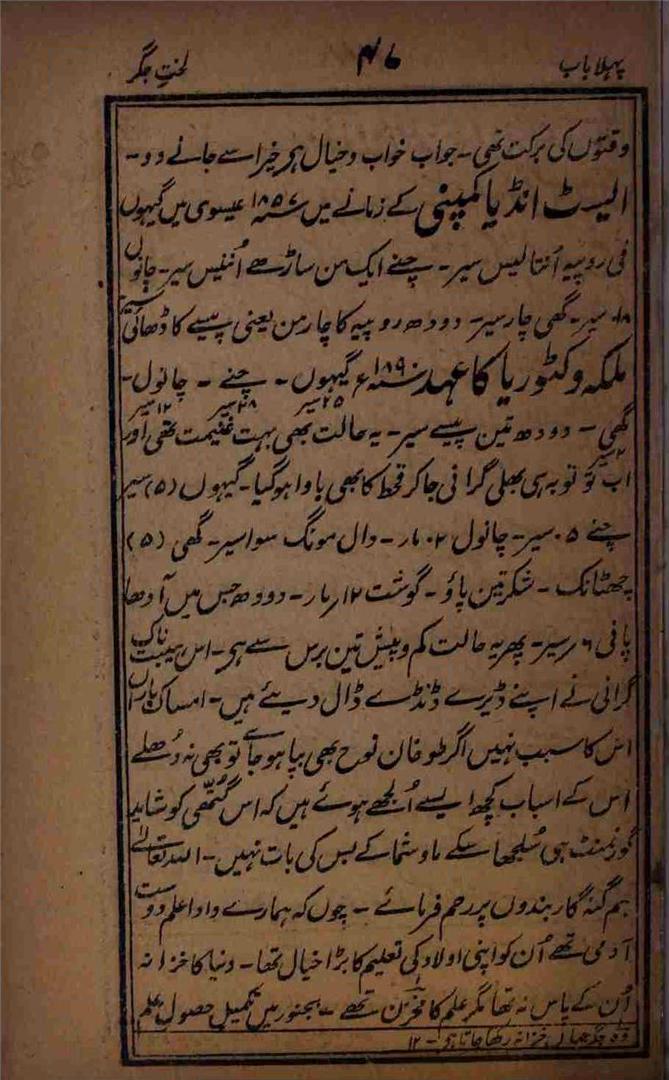 پہلا باب ۴۷ لختِ جگر
وقتوں کی برکت تھی ۔ جواب خواب و خیال ہر خیر اسے جانے دو ۔
ایسٹ انڈیا کمپنی کے زمانے میں ۱۸۵۷ء عیسوی میں گیہوں
فی روپیہ اُنتالیس سیر ۔ چنے ایک من ساڑھے اُنتیس سیر ۔ چانول
۱۸ سیر ۔ گھی چار سیر ۔ دودھ روپیہ کا چار من یعنی پیسے کا ڈھائی سیر
ملکہ وکٹوریا کا عہد ۱۸۹۰ء گیہوں ۲۵ سیر ۔ چنے ۲۸ سیر ۔ چانول ۱۲ سیر ۔
گھی ۲ سیر ۔ دودھ تین پیسے سیر ۔ یہ حالت بھی بہت غنیمت تھی اور
اب تو توبہ ہی بھلی گرانی جا کر قحط کا بھی باوا ہو گیا ۔ گیہوں (۵) سیر
چنے ۵۰ سیر ۔ چانول ۲۰ مار ۔ دال مونگ سوا سیر ۔ گھی (۵)
چھٹانک ۔ شکر تین پاؤ ۔ گوشت ۱۲ ار ۔ دودھ جس میں آدھا
پانی ۶ ر سیر ۔ پھر یہ حالت کم و بیش تین برس سے ہر ۔ اس ہیبت ناک
گرانی نے اپنے ڈیرے ڈنڈے ڈال دیئے ہیں ۔ امساک باراں
اس کا سبب نہیں اگر طوفان نوح بھی بپا ہو جائے تو بھی نہ دُھلے
اس کے اسباب کچھ ایسے اُلجھے ہوئے ہیں کہ اس گتھی کو شاید
گورنمنٹ ہی سُلجھا سکے ماو شما کے بس کی بات نہیں ۔ اللہ تعالےٰ
ہم گنہ گار بندوں پر رحم فرمائے ۔ چوں کہ ہمارے دادا علم دوست
آدمی تھے اُن کو اپنی اولاد کی تعلیم کا بڑا خیال تھا ۔ دنیا کا خزانہ
اُن کے پاس نہ تھا مگر علم کا مخزن تھے ۔ بجنور میں تکمیل حصول علم
وہ جگہ جہاں خزانہ رکھا جاتا ہر ۔ ۱۲